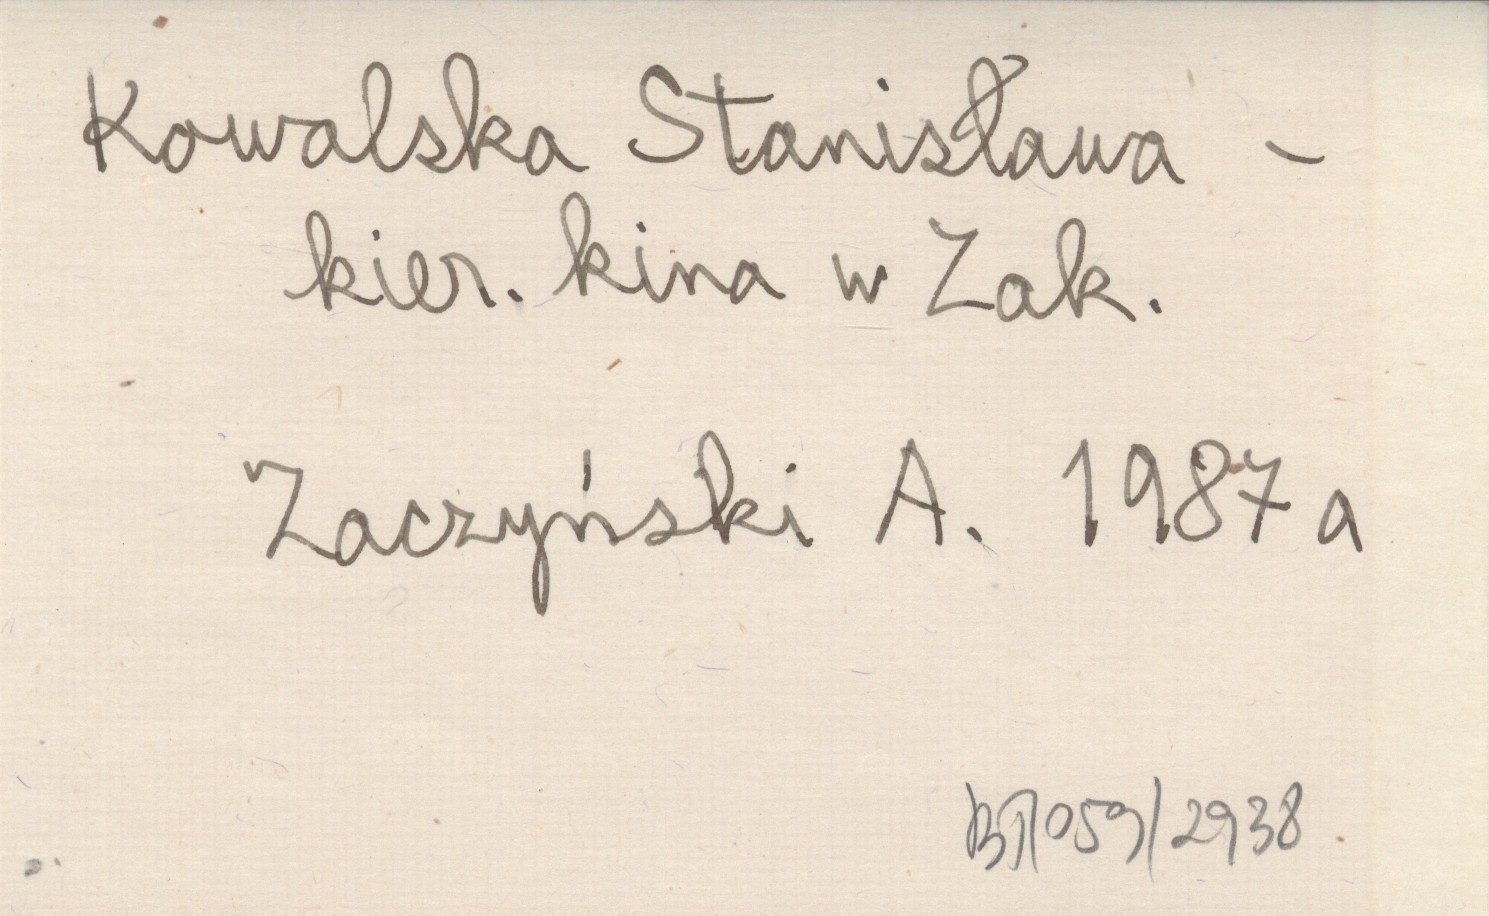 Kowalska Stanisława -
kier. kina w Zak.
Zaczyński A. 1987 a
BJ/059/2938